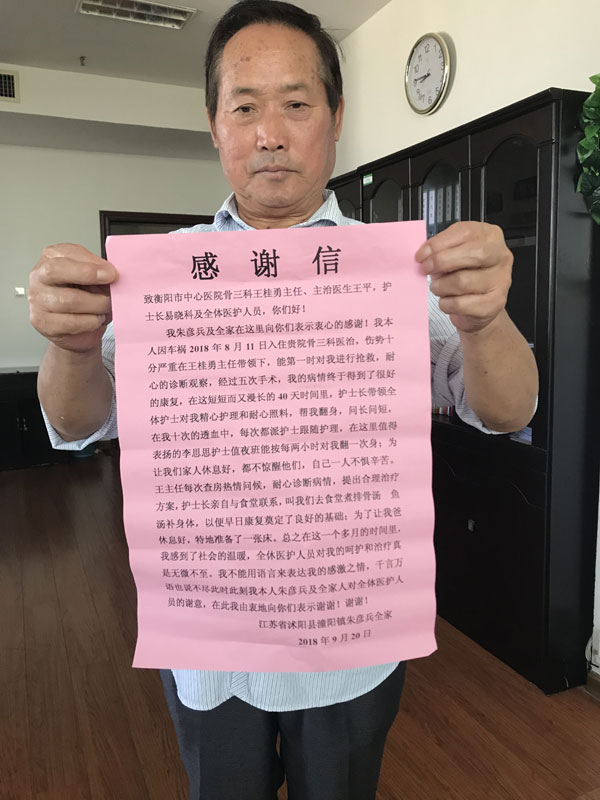 感谢信
致衡阳市中心医院骨三科王桂勇主任、主治医生王平，护
士长易晓科及全体医护人员，你们好！
我朱彦兵及全家在这里向你们表示衷心的感谢！我本
人因车祸 2018 年 8 月 11 日入住贵院骨三科医治，伤势十
分严重在王桂勇主任带领下，能第一时对我进行抢救，耐
心的诊断观察，经过五次手术，我的病情终于得到了很好
的康复，在这短短而又漫长的 40 天时间里，护士长带领全
体护士对我精心护理和耐心照料，帮我翻身，问长问短，
在我十次的透血中，每次都派护士跟随护理，在这里值得
表扬的李思思护士值夜班能按每两小时对我翻一次身；为
让我们家人休息好，都不惊醒他们，自己一人不惧辛苦。
王主任每次查房热情问候，耐心诊断病情，提出合理治疗
方案，护士长亲自与食堂联系，叫我们去食堂煮排骨汤　鱼
汤补身体，以便早日康复奠定了良好的基础；为了让我爸
休息好，特地准备了一张床。总之在这一个多月的时间里，
我感到了社会的温暖，全休医护人员对我的呵护和治疗真
是无微不至。我不能用语言来表达我的感激之情，千言万
语也说不尽此时此刻我本人朱彦兵及全家人对全体医护人
员的谢意，在此我由衷地向你们表示谢谢！谢谢！
江苏省沭阳县潼阳镇朱彦兵全家
2018 年 9 月 20 日